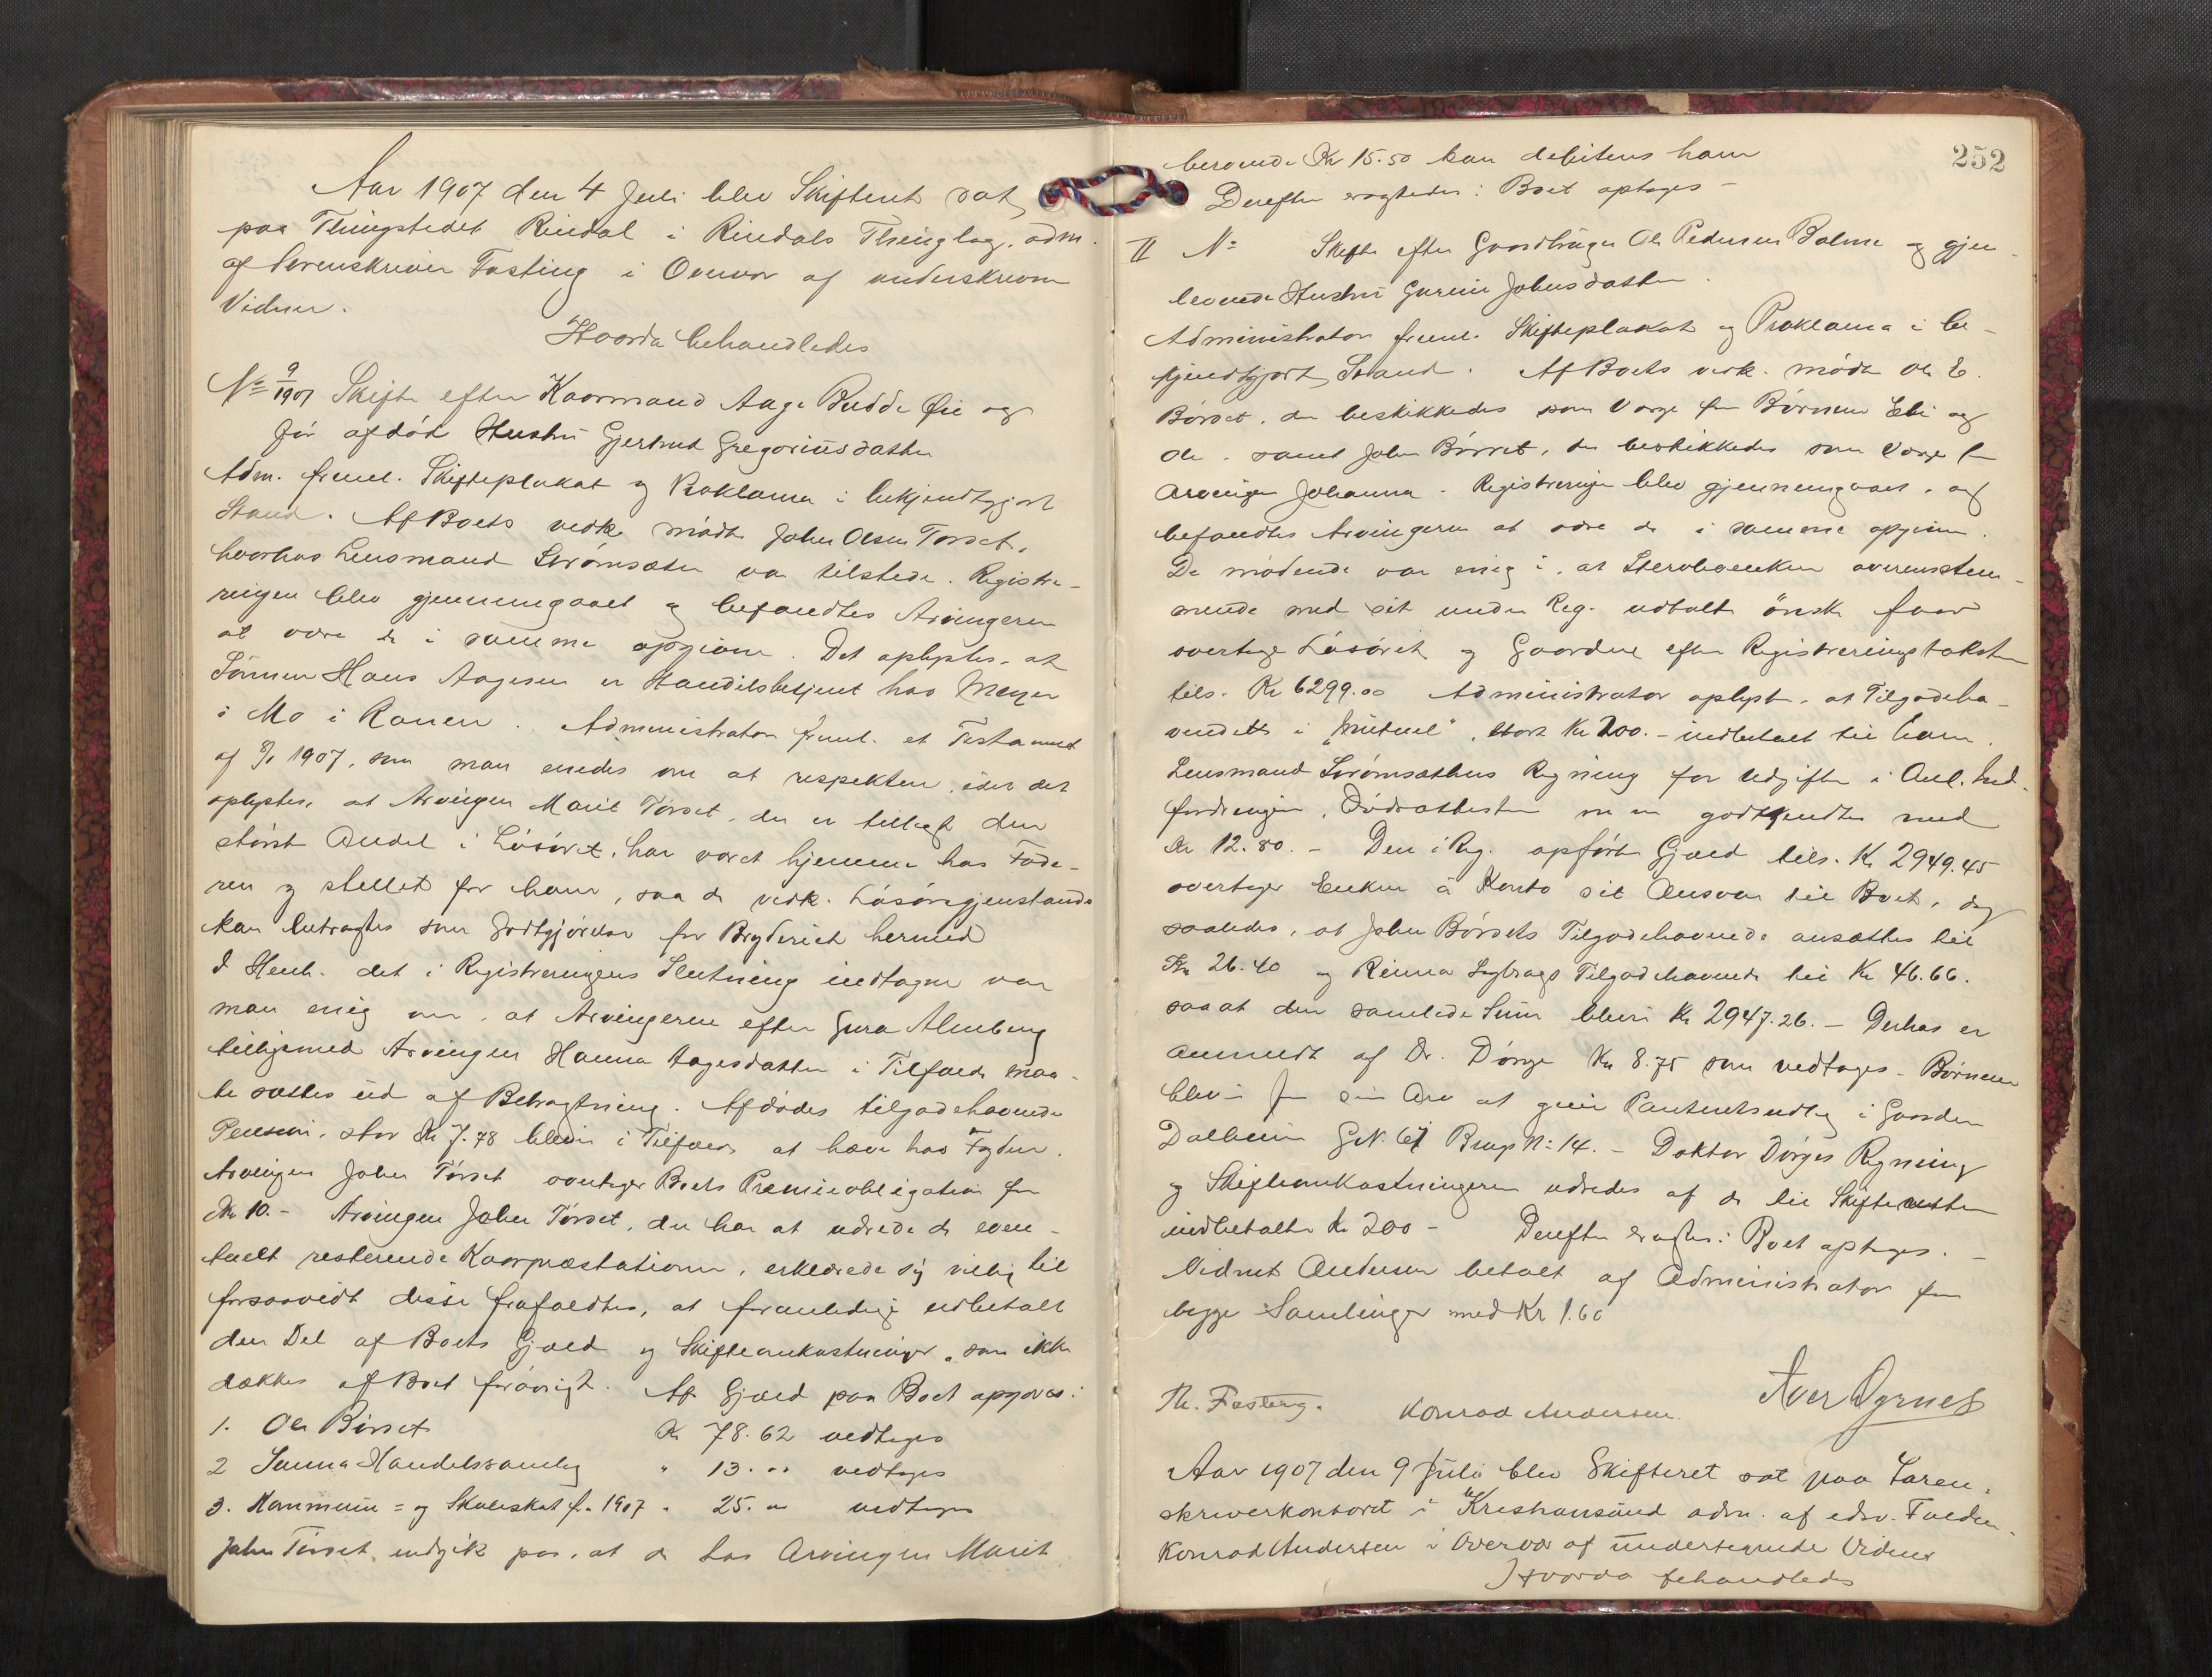 Aar 1907 den 4 Juli blev Skifteret sat
paa Thingstedet Rindal i Rindals Thinglag, adm.
af Sorenskriver Fasting i Overvær af underskrevne
Vidner.
Hvorda behandledes
No 9/1907 Skifte efter Kaarmand Aage Budde Øie og
før afdøde Hustru Gjertrud Gregoriusdatter
Adm. freml. Skifteplakat og Proklama i bekjendtgjort
Stand. Af Boets vedk. mødte John Olsen Torset,
hvorhos Lensmand Strømsæter var tilstede. Registre-
ringen blev gjennemgaaet og befandtes Arvingerne
at være de i samme opgivne. Det oplystes, at
Sønnen Hans Aagesen er Handelsbetjent hos Meyer
i Mo i Ranen. Administrator freml. et Testament
af 1907, som man enedes om at respektere, idet det
oplystes, at Arvingen Marit Torset, der er tillagt den
største Andel i Løsøret, har været hjemme hos Fade-
ren og stellet for ham, saa de vedk. Løsøregjenstande
kan betragtes som Godtgjørelse for Bryderiet hermed
I Henh. det i Registreringens Slutning indtagne var
man enig om, at Arvingerne efter Gura Almberg
tilligemed Arvingen Hanna Aagesdatter i Tilfælde maa-
tte sættes ud af Betragtning. Afdødes tilgodehavende
Pension, stor Kr 7.78 bliver i Tilfælde at hæve hos Fogden.
Arvingen John Torset overtager Boets Premieobligation for
Kr 10.- Arvingen John Torset, der har at udrede de even-
tuelt resterende Kaarpræstationer, erklærede sig villig til
forsaavidt disse frafaldtes, at foranledige udbetalt
den Del af Boets Gjæld og Skifteomkostninger, som ikke
dækkes af Boet forøvrigt. Af Gjæld paa Boet opgaves:
1. Ole Børset Kr 78.62 vedtages
2 Surna Handelssamlag " 13. " vedtages
3. Kommune= og Skoleskat f. 1907 " 25. " vedtages
John Torset indgik paa, at de hos Arvingen Marit
252
beroende Kr 15.50 kan debiteres ham
Derefter eragtedes: Boet optages -
II No Skifte efter Gaardbruger Ole Pedersen Bolme og gjen-
levende Hustru Guruie Johnsdatter.
Administrator freml. Skifteplakat og Proklama i be-
kjendtgjort Stand. Af Boets vedk. mødte Ole E.
Børset, der beskikkedes som Værge for Børnene Ebi og
Ole, samt John Børset, der beskikkedes som Værge for
Arvingen Johanna. Registreringen blev gjennemgaaet, og
befandtes Arvingerne at være de i samme opgivne.
De mødende var enig i, at Stervboenken overensstem-
mende med sit under Reg. udtalte ønske faar
overtage Løsøret og Gaardene efter Registreringstaksten
tils. Kr 6299.00 Administrator oplyste, at Tilgodeha-
vendet i "Mutuel", stort Kr 200.- indbetalt til ham.
Lensmand Strømsæthers Regning for Udgifter i Anl. Ind-
fordringen, Dødsattesten m m godkjendtes med
Kr 12.80. - Den i Reg. opførte Gjæld tils. Kr 2949.45
overtager Enken à Konto sit Ansvar til Boet, dog
saaledes, at John Børsets Tilgodehavende ansættes til
Kr 26.40 og Rinna Sagbrugs Tilgodehavende til Kr 46.66.
saaat den samlede Sum bliver Kr 2947.26. - Derhos er
anmeldt af Dr. Dørge Kr 8.75 som vedtages. Børnene
bliver for sin Arv at give Panteretsudlæg i Gaarden
Dalheim GNo 67 BrugsNo 14. - Doktor Dørges Regning
og Skifteomkostningerne udredes af de til Skifteretten
indbetalte Kr 200 - Derefter eragtes: Boet optages. -
Vidnet Andersen betalt af Administrator for
begge Samlinger med Kr 1.60
Th. Fasting. Konrad Andersen.
Aar 1907 den 9 Juli blev Skifteret sat paa Soren-
skriverkontoret i Kristiansund adm. af edsv. Fuldm.
Konrad Andersen i Overvær af undertegnede Vidner
Hvorda behandledes